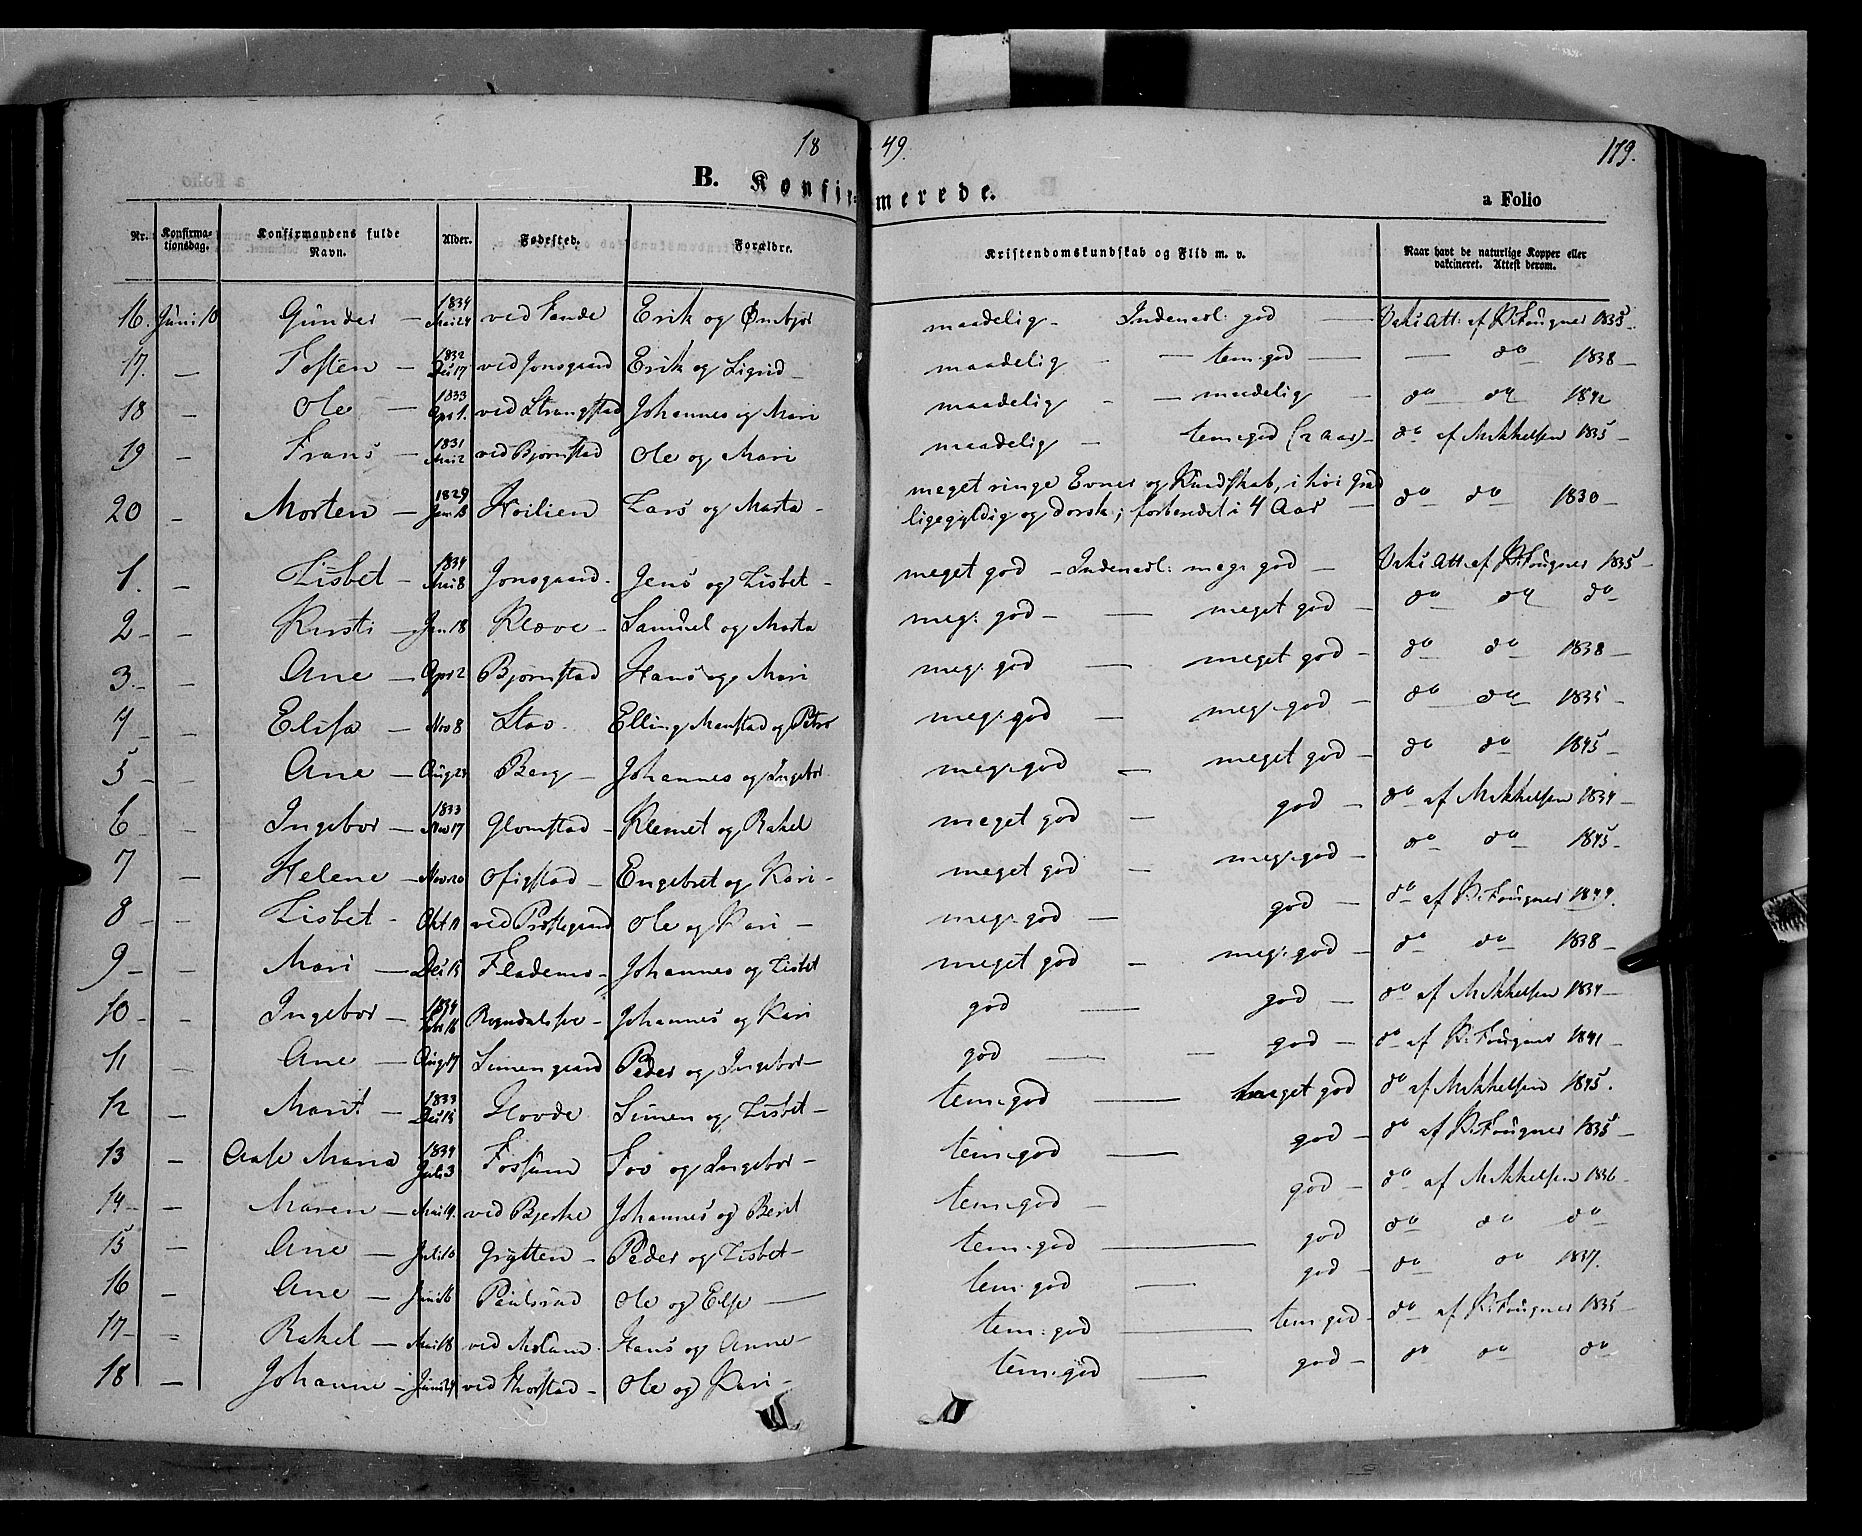 18 49. 179.
B. Konfirmerede. a Folio
Nr. Konfirmationsdag. Konfirmandens fulde Navn. Alder. Fødested. Forældre. Kristendomskundskab og Flid m. v. Naar havt de naturlige Kopper eller vakcineret. Attest derom.
16. Juni 10 Gunder – 1834 Mai 24 ved Fande Erik og maadelig – Indenadl: god – Vaks: Att: af R. Fougner 1835.
17. – Tosten – 1832 Des 17 ved Jonsgaard Erik og Sigrid – maadelig – – tem: god – – do 1838 –
18 – Ole – 1833 Apr 1. ved Strangstad Johannes og Mari maadelig – – maadelig – do do 1842
19 – Frans – 1831 Mai 2 ved Bjørnstad Ole og Mari maadelig – tem: god (2 Aar) – do af Mikkelsen 1835 –
20 – Morten – 1829 Jan 18 Høilien Lars og Marta – meget ringe Evner og Kundskab, i høi Grad
ligegyldig og dorsk; forberedet i 4 Aar – do do 1830 –
1. – Lisbet – 1834 Mai 8 Jonsgaard – Jens og Lisbet – meget god – Indenadl: meg: god – Vaks: Att: af R. Fougner 1835 –
2 – – Kersti – Jan 18 Kløve – Samuel og Marta meg: god – – meget god – do do do
3. – – Ane – Apr 2 Bjørnstad Hans og Mari meg: god – meget god – do do 1838 –
4 – – Elisa – Nov 8 Stav – Elling Monstad og Petro meg: god – meg: god – do do 1835 –
5 – – Ane – Aug 24 Berg – Johannes og Ingebor meg: god – meget god – do do 1845 –
6 – – Ingebor – 1833 Nov 17 Glomstad – Klemet og Rakel meget god – god – do af Mikkelsen 1834 –
7 – Helene – Nov 20 Ofigstad – Engebret og Kari – meget god – meg: god – do do 1845 –
8 – – Lisbet – Okt 11 ved Prøstegaard Ole og Kari – meg: god – god – do af R. Fougner 1844.
9 – – Mari – Des 15 Flademo – Johannes og Lisbet meget god – meg: god – do do 1838 –
10 – – Ingebor – 1834 Johannes og Kari god – god – do af Mikkelsen 1834 –
11 – Ane – Aug 17 Simengaard Peder og Ingebor – god – – god – do af R. Fougner 1841 –
12 – Marit – 1833 Des 15 Hovde Simen og Lisbet – tem: god – meget god do af Mikkelsen 1845.
13 – Aase Maria 1834 Juli 3 Fossum Tov og Ingebor – tem: god – god – do af R. Fougner 1835 –
14 – – Maren – Mai 19. ved Bjerke Johannes og Berit tem: god – god – do af Mikkelsen 1836 –
15 – Ane – Juli 10 Grytten – Peder og Lisbet – tem: god – god do do do
16 – Ane – Juni 26 Paulsrud Ole og Else – tem: god – god – do do 1837.
17 – – Rakel – Mai 18 ved Moland – Hans og Anne – tem: god – tem: god – do af R. Fougner 1835 –
18 – Johanne – Juni 29 ved Thorstad – Ole og Kari – tem: god – god – do do do